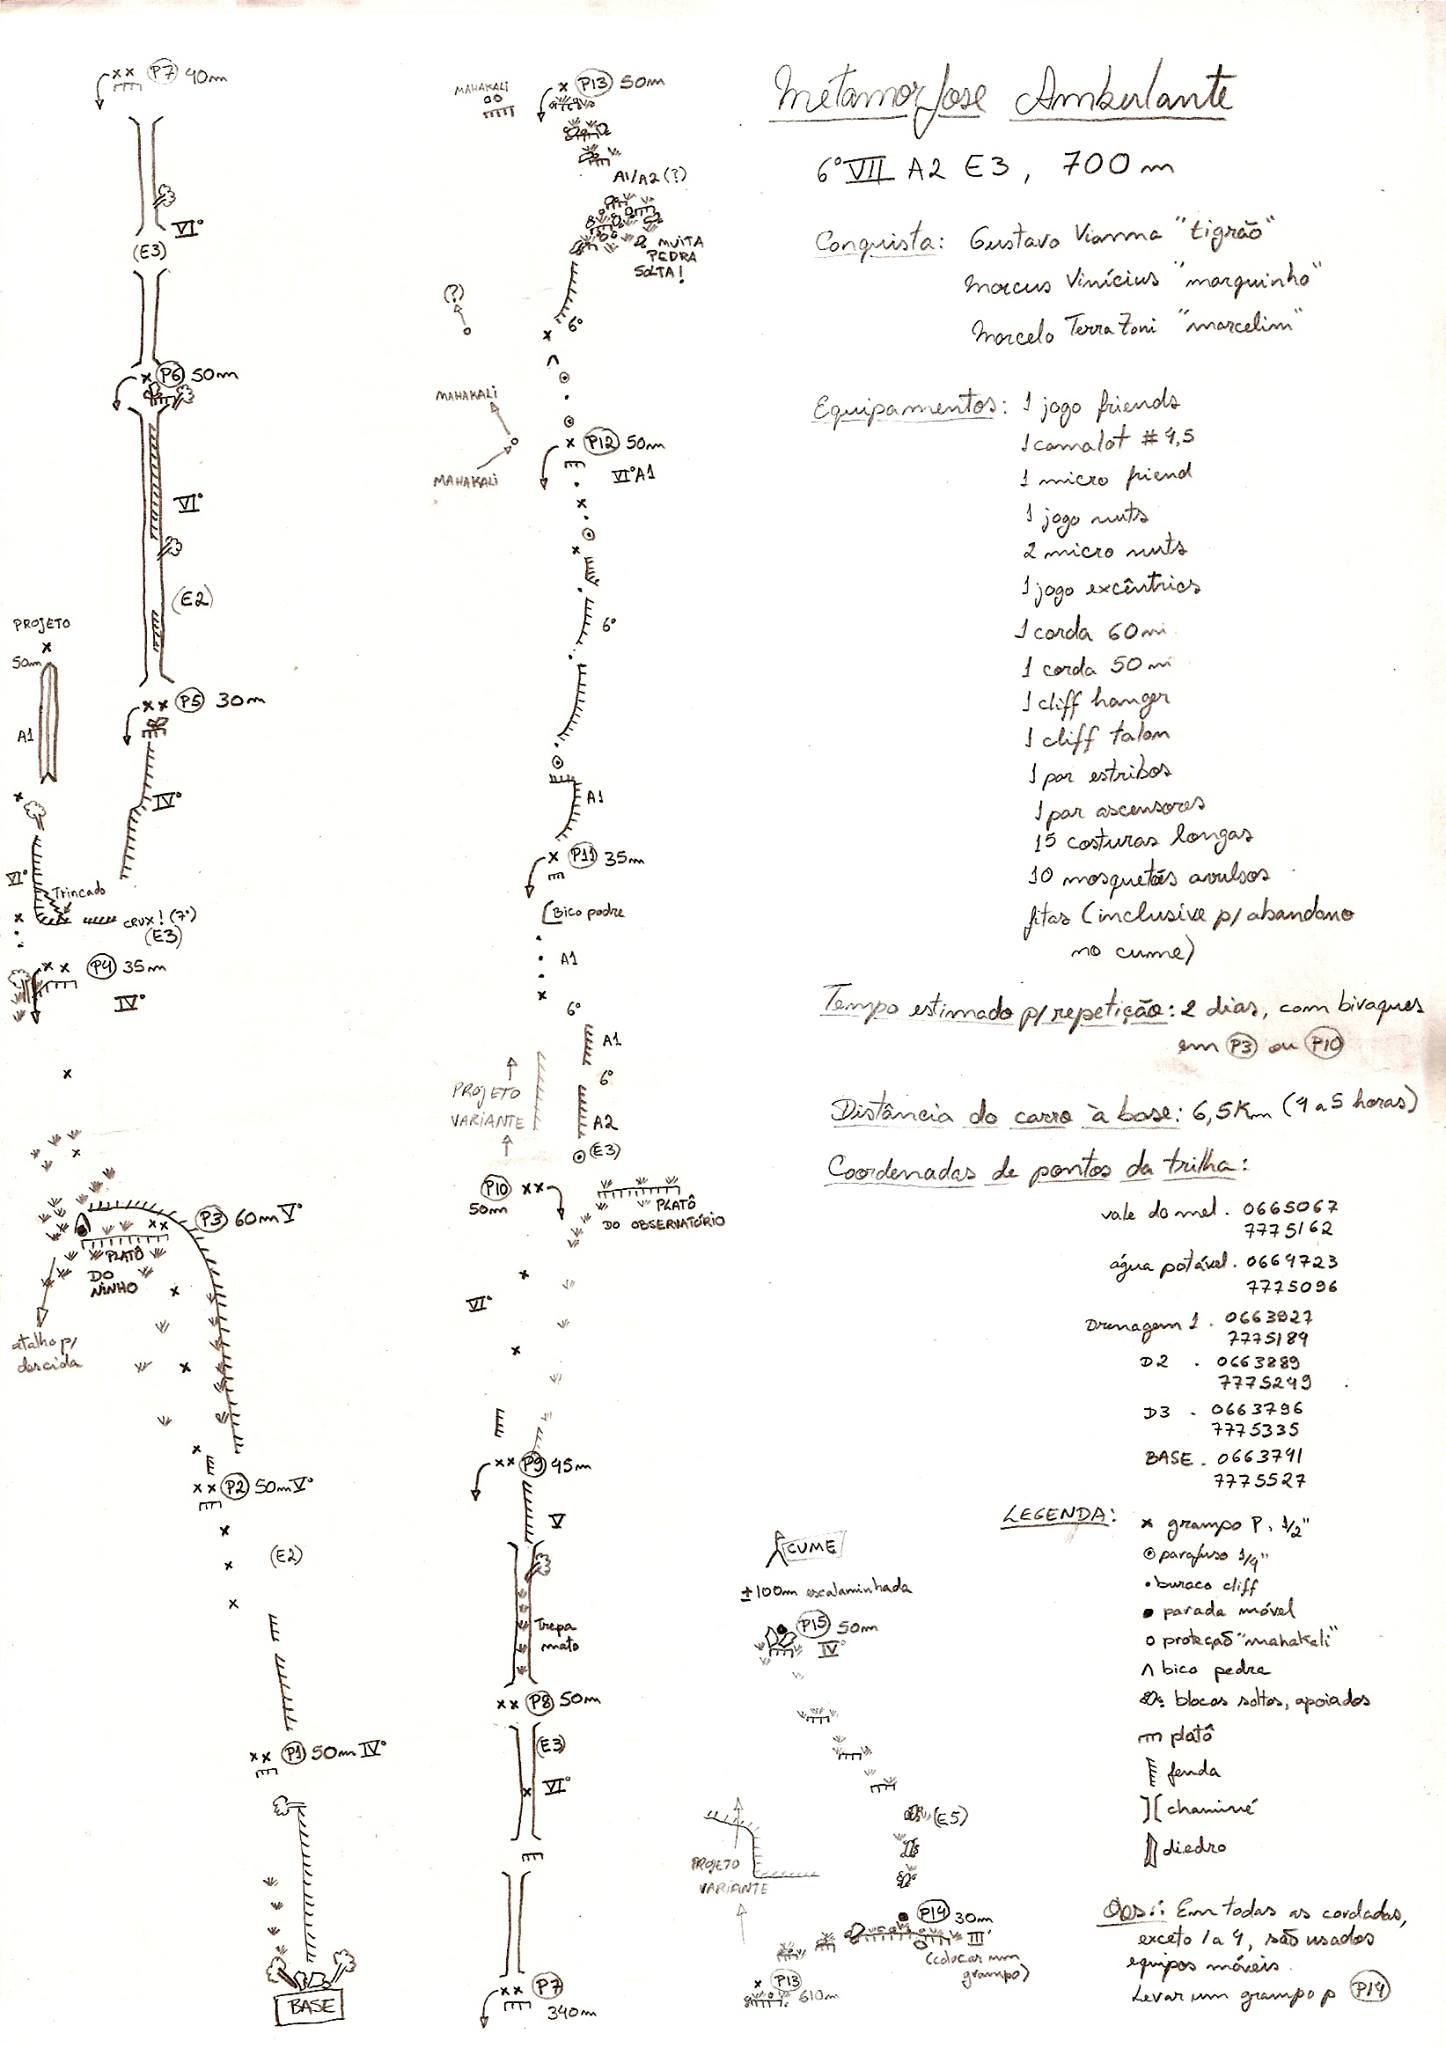 Metamorfose Ambulante
6º VII A2 E3, 700m
Conquista: Gustavo Vianna "tigrão"
Marcus Vinícius "marquinho"
Marcelo Terra Zoni "marcelim"
Equipamentos: 1 jogo friends
1 camalot #4,5
1 micro friend
1 jogo nuts
2 micro nuts
1 jogo excêntrics
1 corda 60m
1 corda 50m
1 cliff hanger
1 cliff talon
1 par estribos
1 par ascensores
15 costuras longas
10 mosquetões avulsos
fitas (inclusive p/ abandono
no cume)
Tempo estimado p/ repetição: 2 dias, com bivaques
em P3 ou P10
Distância do carro à base: 6,5Km (4 a 5 horas)
Coordenadas de pontos da trilha:
vale do mel. 0665067
7775162
água potável. 0664723
7775096
Drenagem 1. 0663927
7775189
D2. 0663889
7775249
D3. 0663796
7775335
BASE. 0663791
7775527
LEGENDA:
x grampo P. 1/2"
parafuso 1/4"
buraco cliff
parada móvel
proteção "mahakali"
bico pedra
blocos soltos, apoiados
platô
fenda
chaminé
diedro
Obs.: Em todas as cordadas,
exceto 1 a 4, são usados
equipos móveis.
Levar um grampo p P14
x x P7 40m
VIº
(E3)
x P6 50m
VIº
(E2)
PROJETO
x
50m
A1
x x P5 30m
x
IVº
VIº
Trincado
x
CRUX! (7º)
(E3)
x x P4 35m
IVº
x
x
P3 60m Vº
x x
PLATÔ
DO
NINHO
x
atalho p/
descida
x
x
x x P2 50m Vº
x
x
(E2)
x
x x P1 50m IVº
BASE
MAHAKALI
x P13 50m
A1/A2 (?)
MUITA
PEDRA
SOLTA!
(?)
6º
x
MAHAKALI
x P12 50m
MAHAKALI
VIº A1
x
x
6º
A1
x P11 35m
Bico pedra
A1
x
6º
A1
PROJETO
VARIANTE
6º
A2
(E3)
P10 x x
50m
PLATÔ
DO OBSERVATÓRIO
x
VIº
x
x x P9 45m
V
Trepa
mato
x x P8 50m
(E3)
x VIº
x x P7
340m
CUME
±100m escalaminhada
P15 50m
IVº
(E5)
PROJETO
VARIANTE
P14 30m
IIIº
(colocar um
grampo)
x P13
610m